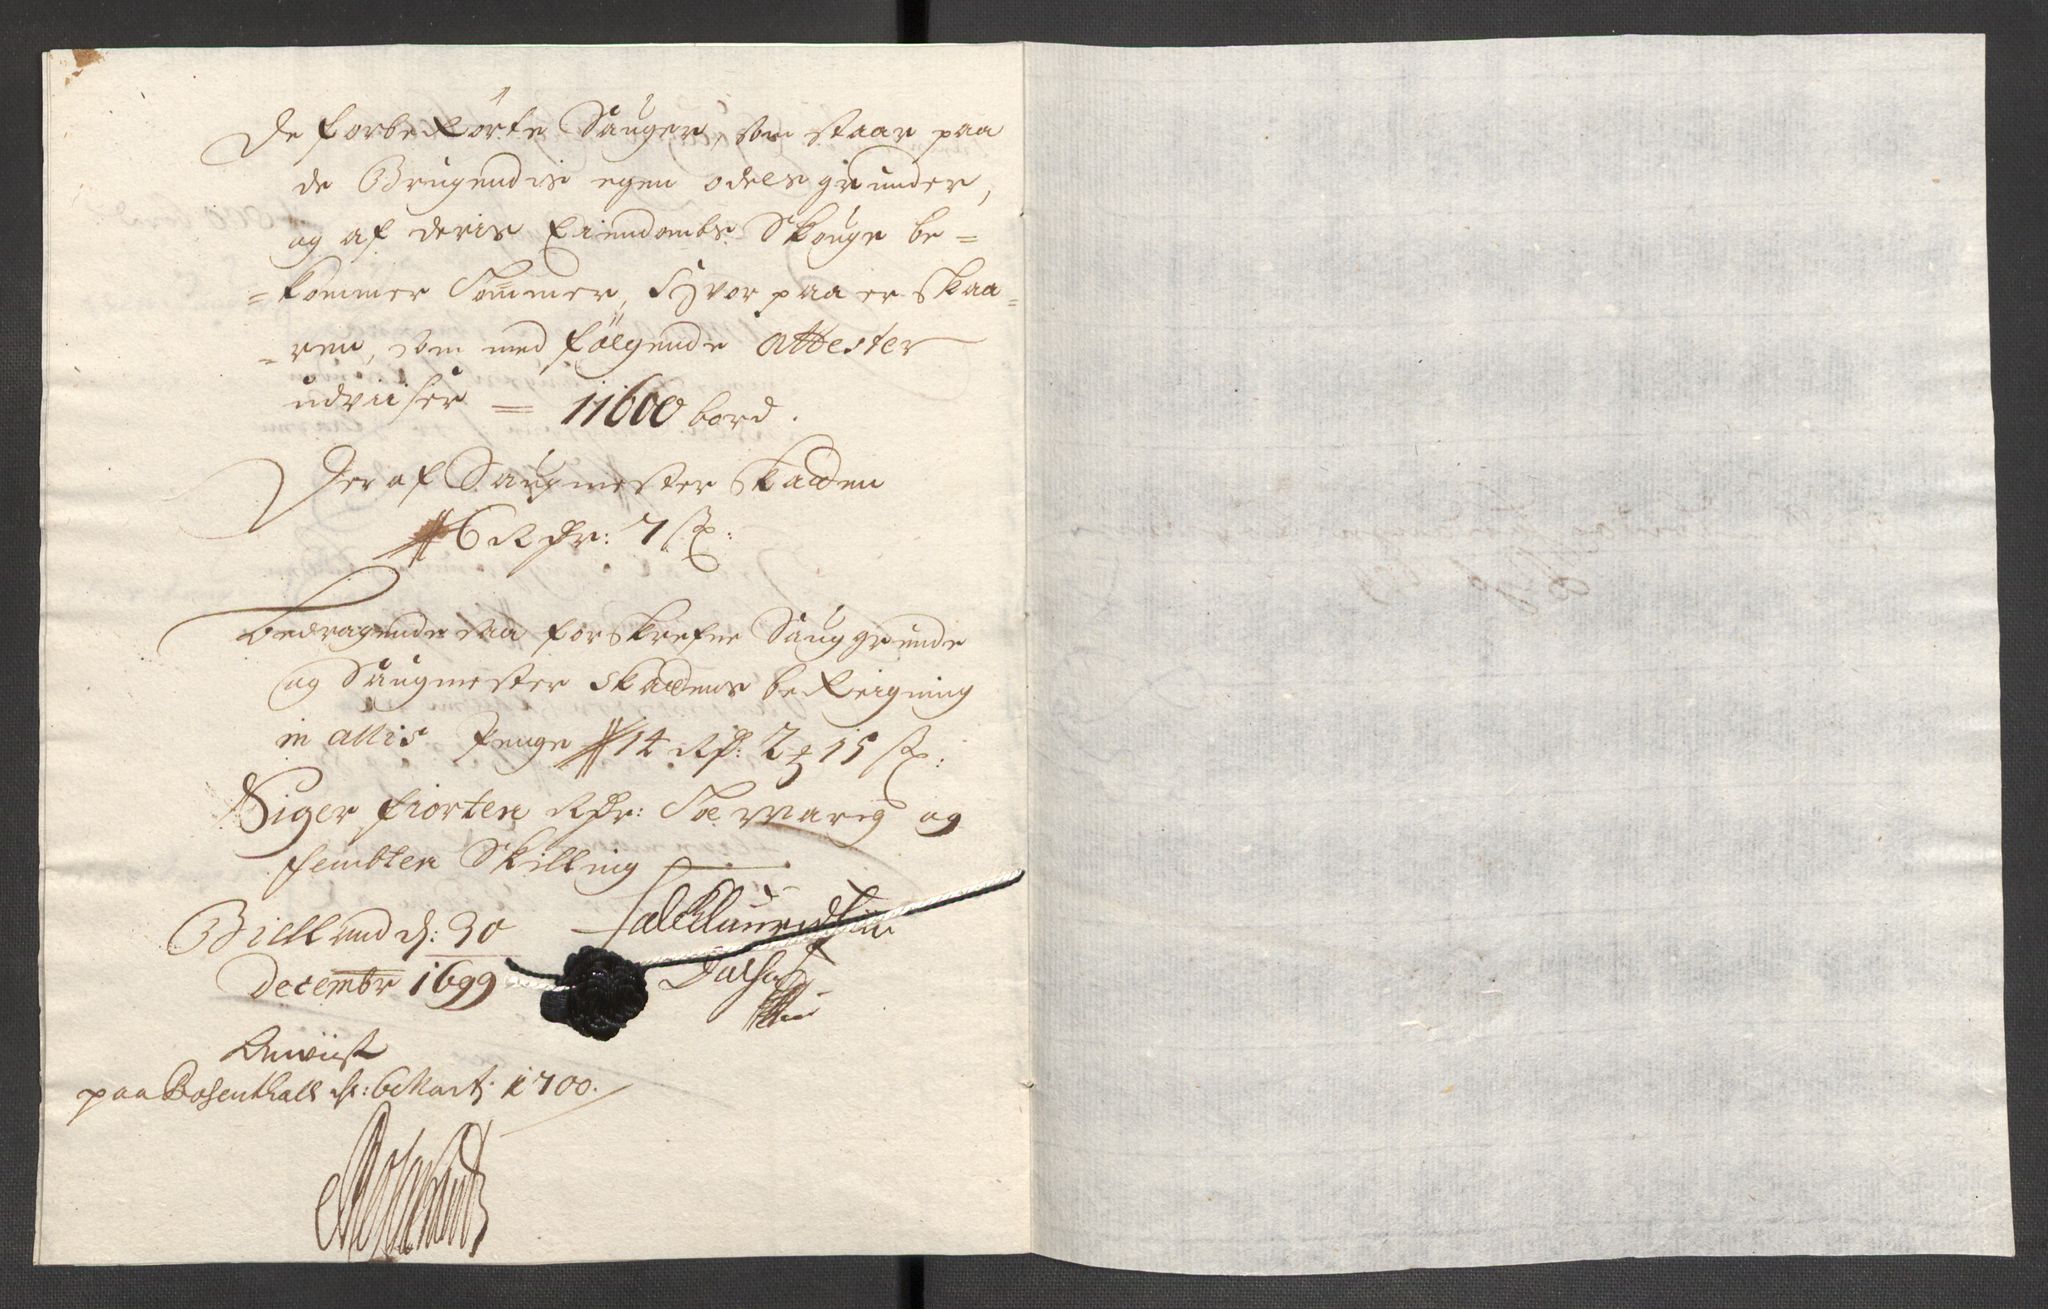 De forbeRörte Sauger, som staar paa
de Brugendis egen odels grunder,
og af deris Eiendombs Skouge be=
=kommer Tömmer, hvor paa er skaa=
=ren, som med fölgende Attester
udviiser = 11600 bord.
Der af Saugmester skatten
6 Rdr: 7 ß:
Bedragende saa forskrefne Sauggrunde
og Saugmester skattens beReigning
in alles Penge 14 Rd: 2 15 ß:
Siger fiorten Rdr: Toe march og
fembten Skilling
d: 30
Decembr 1699
Reviist
paa Rosenthall d: 6 Marti 1700.